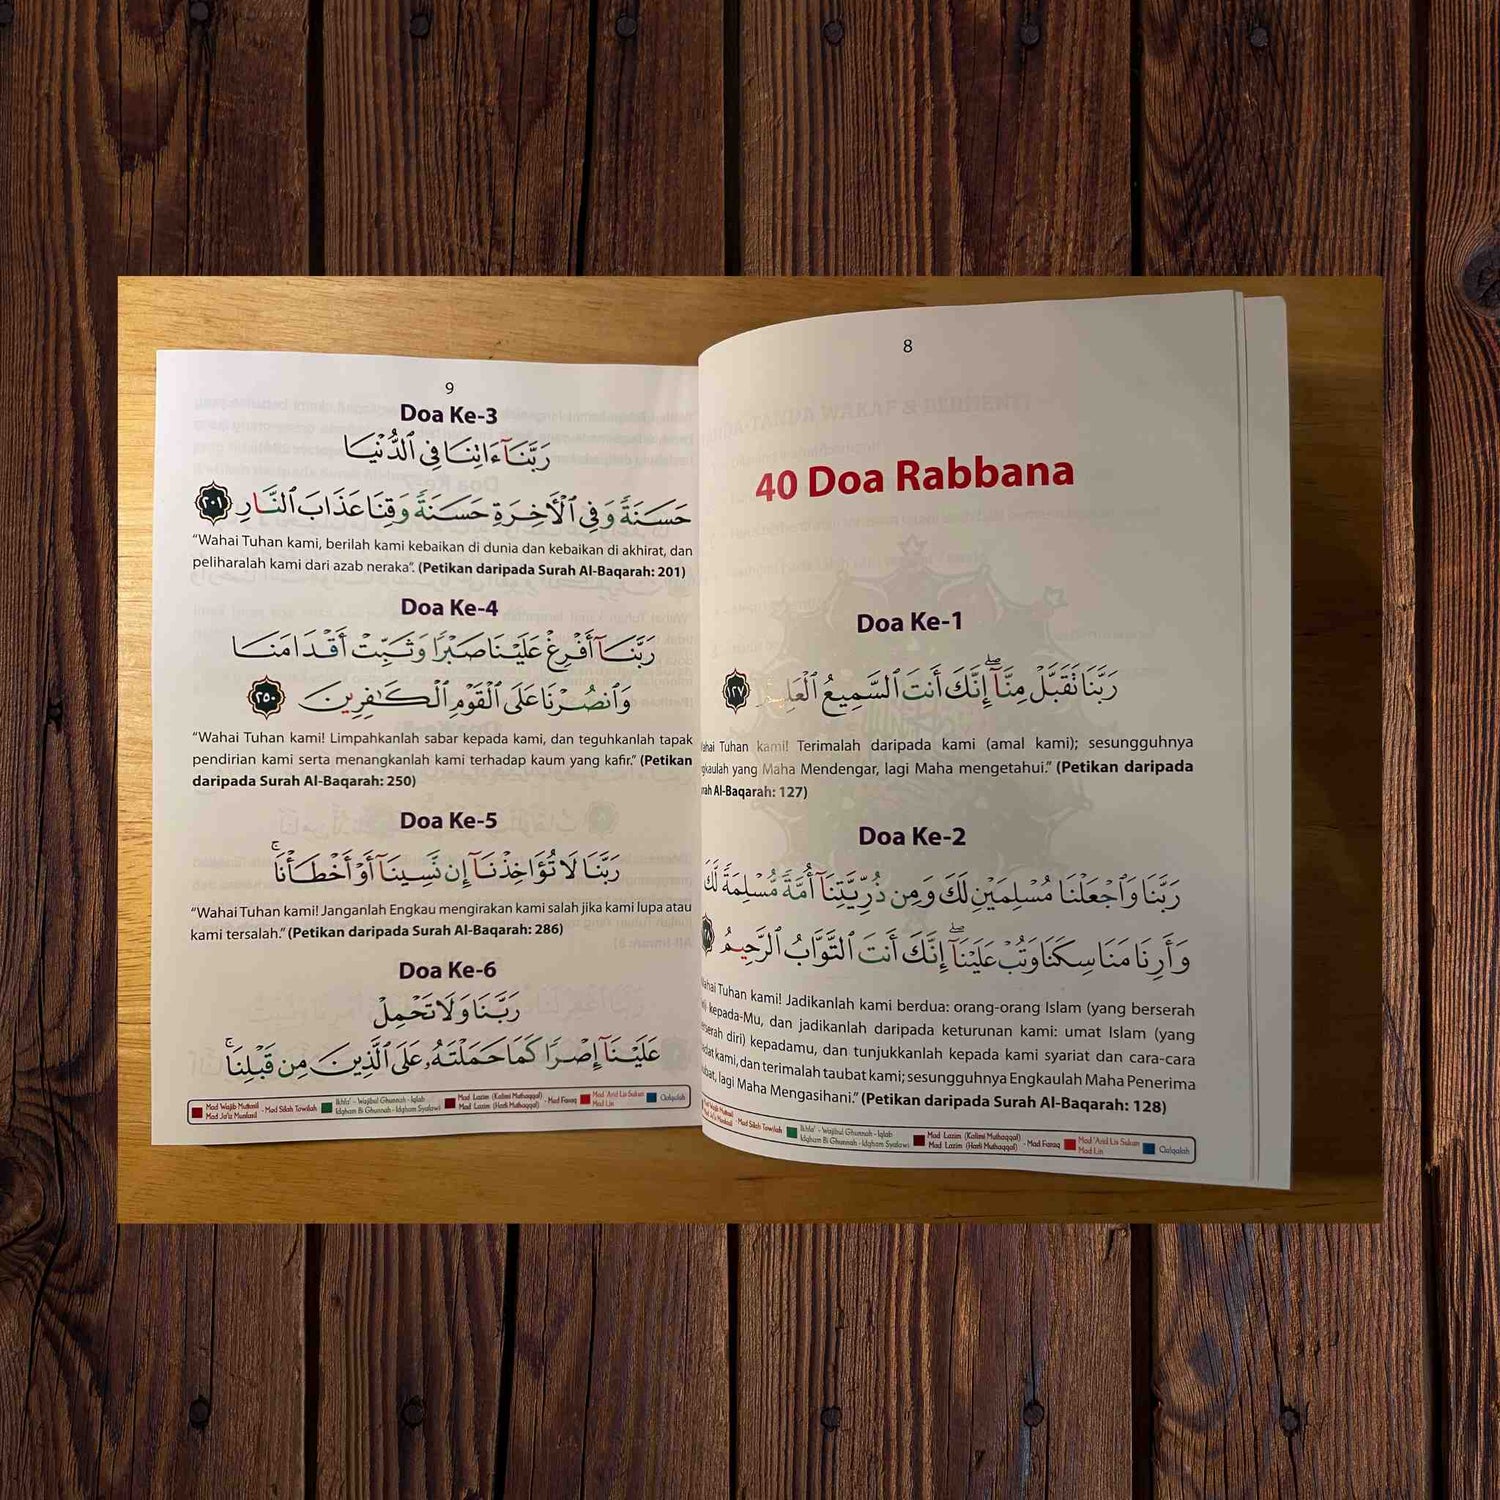 8
40 Doa Rabbana
Doa Ke-1
رَبَّنَا تَقَبَّلْ مِنَّآ ۖ إِنَّكَ أَنتَ ٱلسَّمِيعُ
١٢٧
Tuhan kami! Terimalah daripada kami (amal kami); sesungguhnya
yang Maha Mendengar, lagi Maha mengetahui.” (Petikan daripada
Al-Baqarah: 127)
Doa Ke-2
رَبَّنَا وَٱجْعَلْنَا مُسْلِمَيْنِ لَكَ وَمِن ذُرِّيَّتِنَآ أُمَّةً مُّسْلِمَةً لَّكَ
وَأَرِنَا مَنَاسِكَنَا وَتُبْ عَلَيْنَآ ۖ إِنَّكَ أَنتَ ٱلتَّوَّابُ ٱلرَّحِيمُ
Tuhan kami! Jadikanlah kami berdua: orang-orang Islam (yang berserah
kepada-Mu, dan jadikanlah daripada keturunan kami: umat Islam (yang
diri) kepadamu, dan tunjukkanlah kepada kami syariat dan cara-cara
kami, dan terimalah taubat kami; sesungguhnya Engkaulah Maha Penerima
lagi Maha Mengasihani.” (Petikan daripada Surah Al-Baqarah: 128)
Mad Silah Towilah
Ikhfa' - Wajibul Ghunnah - Iqlab
Idgham Bi Ghunnah - Idgham Syafawi
Mad Lazim (Kalimi Muthaqqal)
Mad Lazim (Harfi Muthaqqal) - Mad Farq
Mad 'Arid Lis Sukun
Mad Lin
Qalqalah
9
Doa Ke-3
رَبَّنَآ ءَاتِنَا فِي ٱلدُّنْيَا
حَسَنَةً وَفِي ٱلْأَخِرَةِ حَسَنَةً وَقِنَا عَذَابَ ٱلنَّارِ ٢٠١
“Wahai Tuhan kami, berilah kami kebaikan di dunia dan kebaikan di akhirat, dan
peliharalah kami dari azab neraka”. (Petikan daripada Surah Al-Baqarah: 201)
Doa Ke-4
رَبَّنَآ أَفْرِغْ عَلَيْنَا صَبْرًا وَثَبِّتْ أَقْدَامَنَا
وَٱنصُرْنَا عَلَى ٱلْقَوْمِ ٱلْكَٰفِرِينَ ٢٥٠
“Wahai Tuhan kami! Limpahkanlah sabar kepada kami, dan teguhkanlah tapak
pendirian kami serta menangkanlah kami terhadap kaum yang kafir.” (Petikan
daripada Surah Al-Baqarah: 250)
Doa Ke-5
رَبَّنَا لَا تُؤَاخِذْنَآ إِن نَّسِينَآ أَوْ أَخْطَأْنَا ۚ
“Wahai Tuhan kami! Janganlah Engkau mengirakan kami salah jika kami lupa atau
kami tersalah.” (Petikan daripada Surah Al-Baqarah: 286)
Doa Ke-6
رَبَّنَا وَلَا تَحْمِلْ
عَلَيْنَآ إِصْرًا كَمَا حَمَلْتَهُۥ عَلَى ٱلَّذِينَ مِن قَبْلِنَا ۚ
Mad Wajib Muttasil
Mad Ja'iz Munfasil - Mad Silah Towilah
Ikhfa' - Wajibul Ghunnah - Iqlab
Idgham Bi Ghunnah - Idgham Syafawi
Mad Lazim (Kalimi Muthaqqal)
Mad Lazim (Harfi Muthaqqal) - Mad Farq
Mad 'Arid Lis Sukun
Mad Lin
Qalqalah